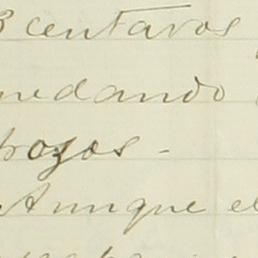 3 centavos
nedando
trozos -
Aunque el